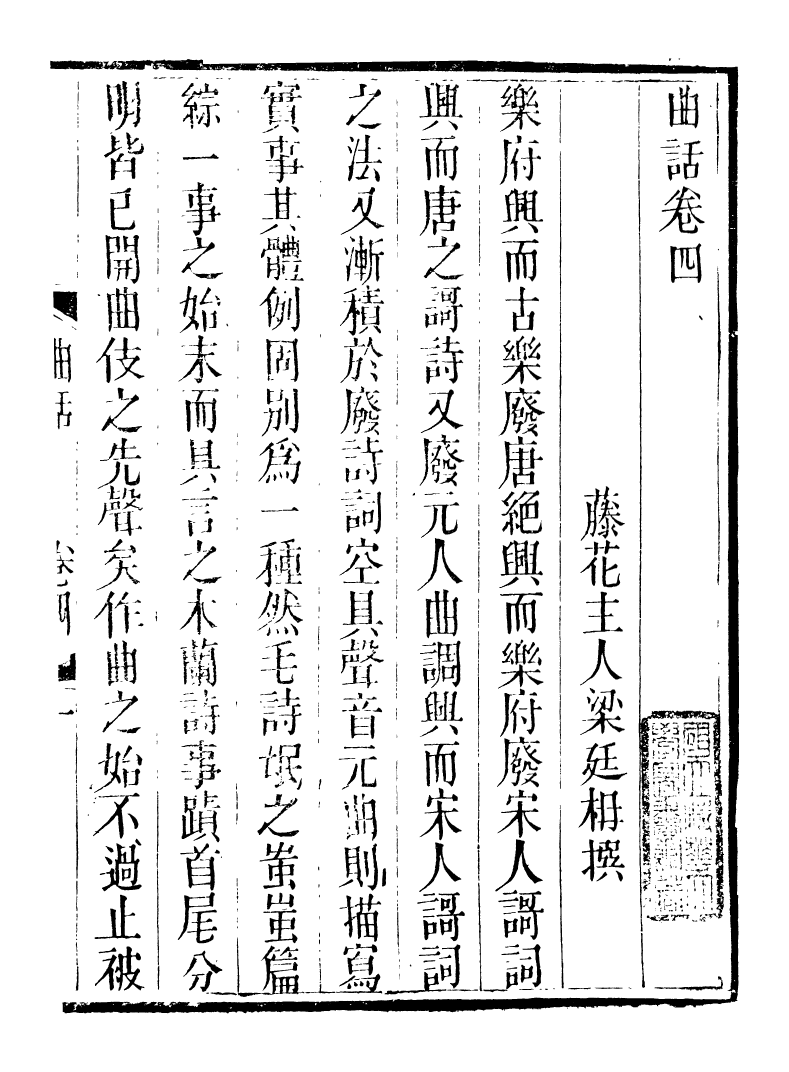 曲話卷四
藤花主人梁廷枏撰
樂府興而古樂廢唐絕興而樂府廢宋人謌詞
興而唐之謌詩又廢元人曲調興而宋人謌詞
之法又漸積於廢詩詞空具聲音元曲則描寫
實事其體例固別爲一種然毛詩氓之蚩蚩篇
綜一事之始末而具言之木蘭詩事蹟首尾分
明皆已開曲伎之先聲矣作曲之始不過止被
曲話 卷四 一